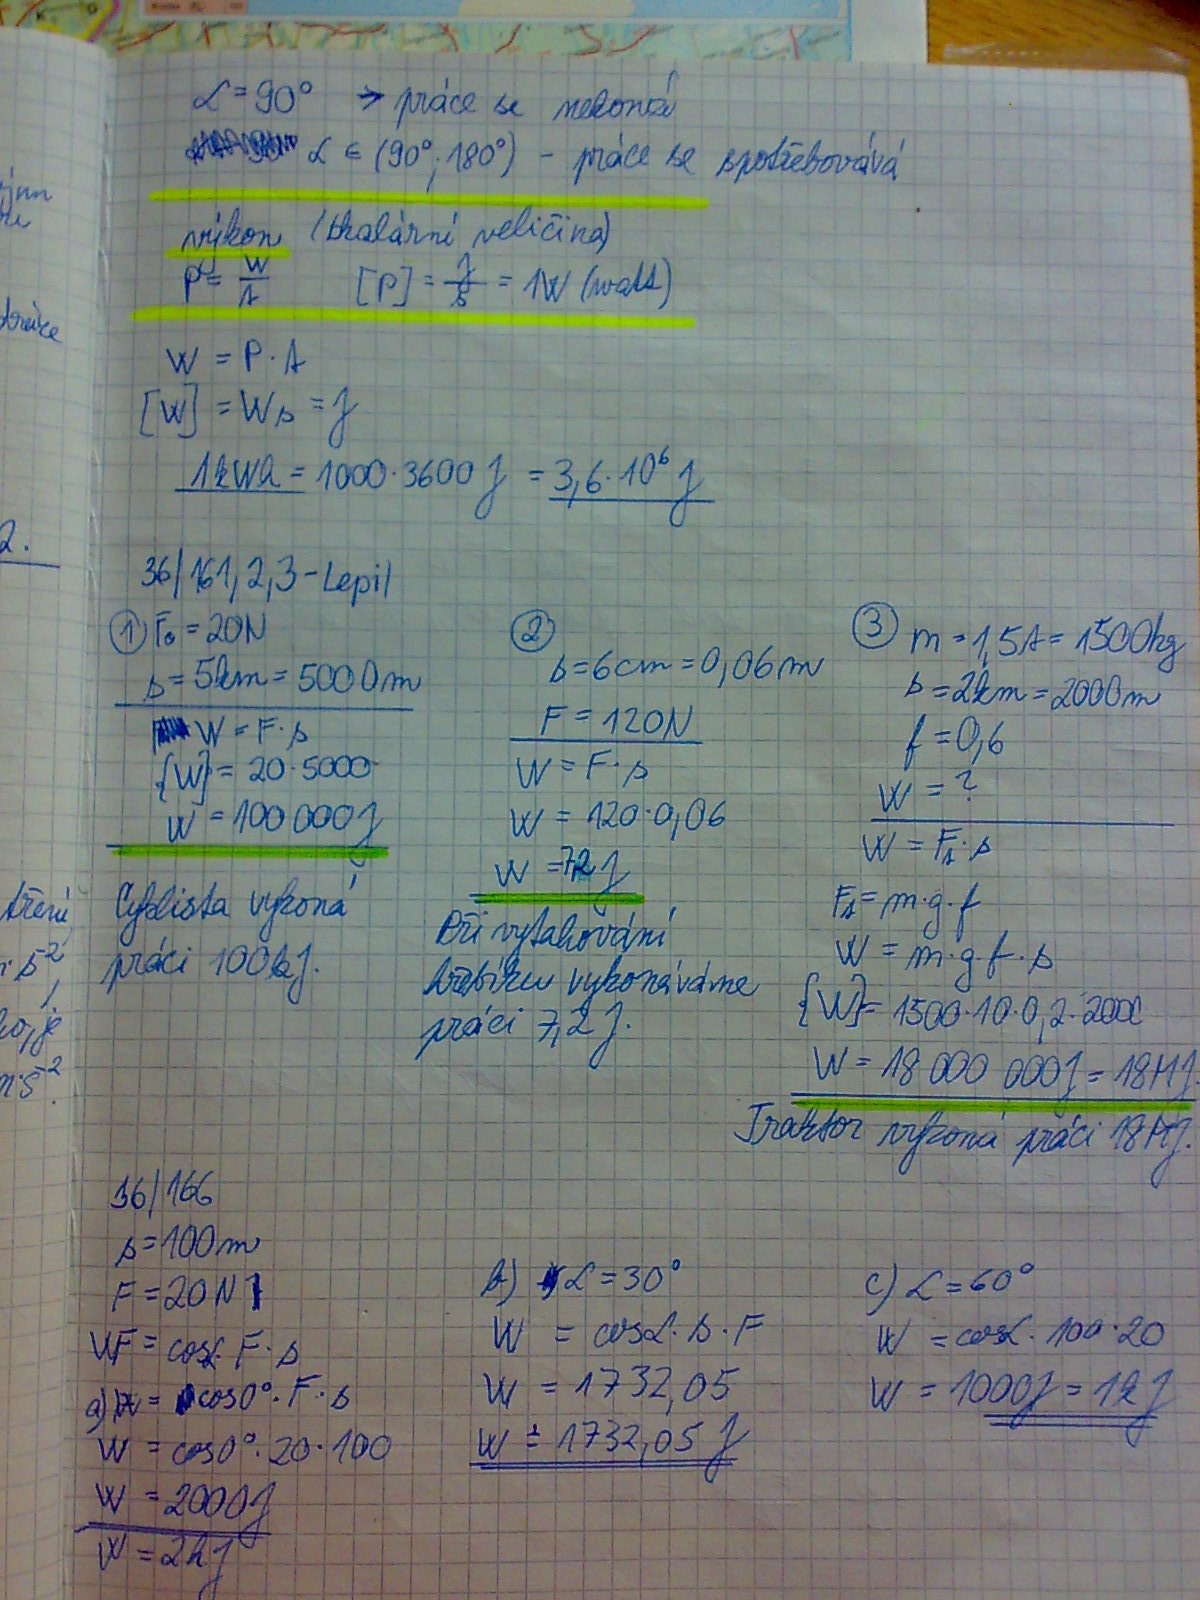 α = 90° → práce se nekoná
α ∈ (90°, 180°) - práce se spotřebovává
výkon (skalární veličina)
P = W/t [P] = J/s = 1W (watt)
W = P · t
[W] = Ws = J
1kWh = 1000·3600 J = 3,6·10⁶ J
36/161, 2, 3 - Lepil
① F₀ = 20N
s = 5km = 5000m
W = F · s
{W} = 20·5000
W = 100 000 J
Cyklista vykoná
práci 100kJ.
②
s = 6cm = 0,06m
F = 120N
W = F · s
W = 120·0,06
W = 7,2 J
Při vytahování
hřebíku vykonáváme
práci 7,2 J.
③ m = 1,5t = 1500kg
s = 2km = 2000m
f = 0,6
W = ?
W = Fₜ · s
Fₜ = m·g·f
W = m·g·f·s
{W} = 1500·10·0,2·2000
W = 18 000 000J = 18MJ
Traktor vykoná práci 18MJ.
36/166
s = 100m
F = 20N
W = cosα · F · s
a) W = cos0° · F · s
W = cos0° · 20 · 100
W = 2000J
W = 2kJ
b) α = 30°
W = cosα · s · F
W = 1732,05
W ≐ 1732,05 J
c) α = 60°
W = cosα · 100·20
W = 1000J = 1kJ
tření